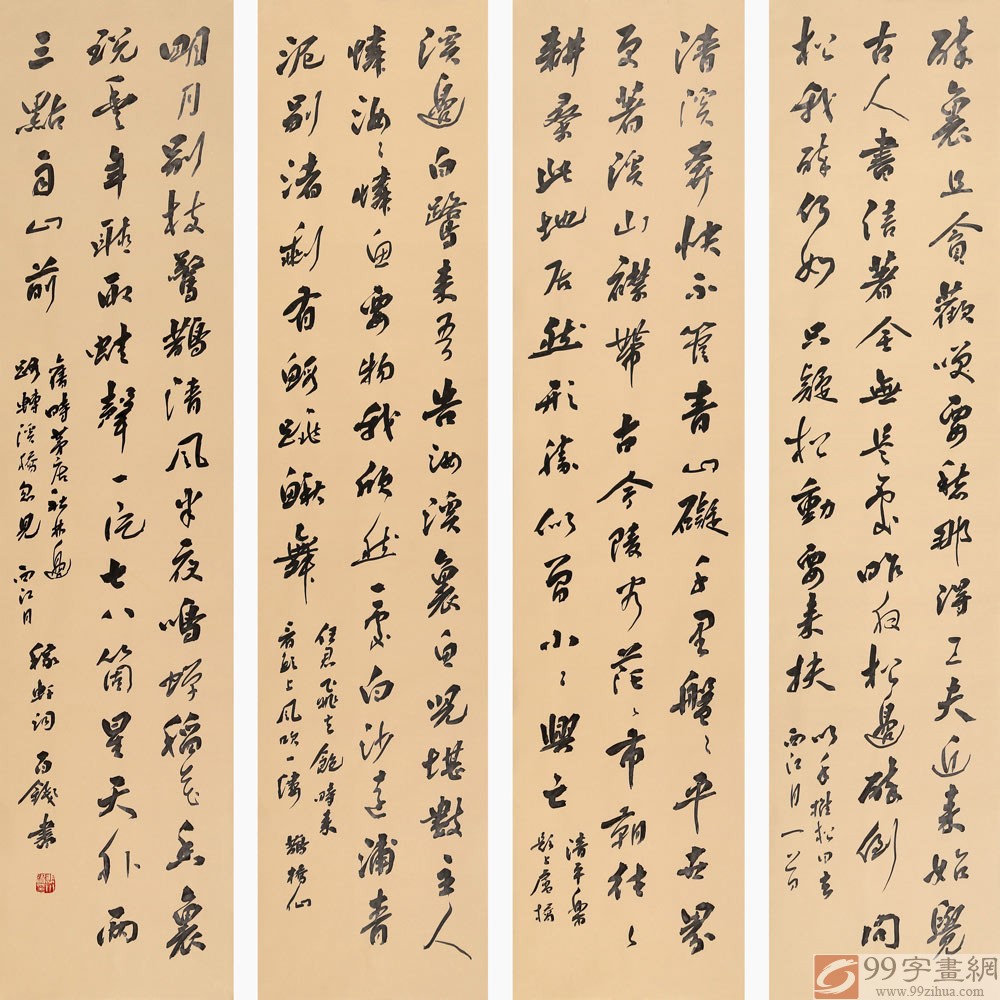 醉裏且貪歡笑要愁那得工夫近來始覺
古人書信著全無是處昨夜松邊醉倒問
松我醉何如只疑松動要來扶
以手推松曰去
西江月一首
清溪奔快不管青山礙千里盤〻平世界
更著溪山襟帶古今陵谷茫〻市朝往〻
耕桑此地居然形勝似曾小〻興亡
清平樂
題上盧橋
溪邊白鷺來吾告汝溪裏魚兒堪數主人
憐汝〻憐魚要物我欣然一處白沙遠浦青
泥別渚剩有鰕跳鰍舞
任君飛去飽時來
看頭上風吹一縷 鵲橋仙
明月別枝驚鵲清風半夜鳴蟬稻花香裏
說豐年聽取蛙聲一片七八箇星天外兩
三點雨山前
舊時茅店社林邊
路轉溪橋忽見 西江月 稼軒詞 書
99字畫網
www.99zihua.com